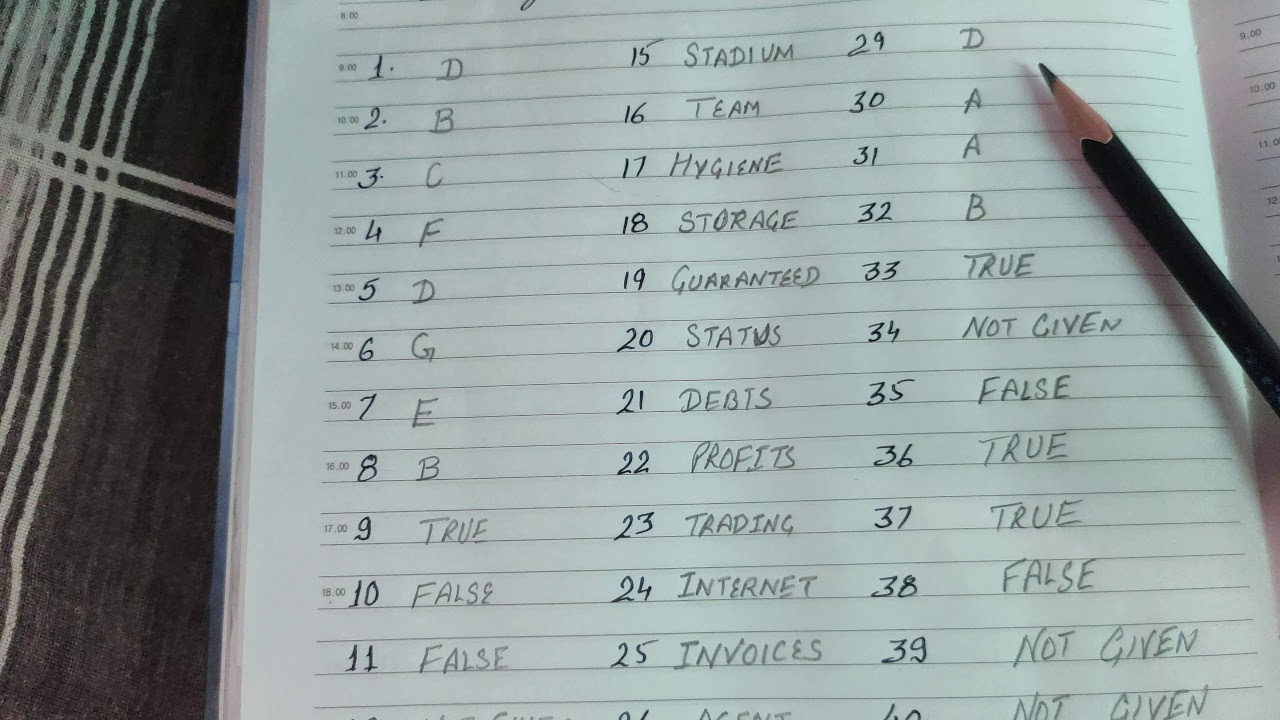 8.00
9.00 1. D 15 STADIUM 29 D 9.00
10.00 2. B 16 TEAM 30 A 10.00
11.00 3. C 17 HYGIENE 31 A
12.00 4 F 18 STORAGE 32 B 12
13.00 5 D 19 GUARANTEED 33 TRUE
14.00 6 G 20 STATUS 34 NOT GIVEN
15.00 7 E 21 DEBTS 35 FALSE
16.00 8 B 22 PROFITS 36 TRUE
17.00 9 TRUE 23 TRADING 37 TRUE
18.00 10 FALSE 24 INTERNET 38 FALSE
11 FALSE 25 INVOICES 39 NOT GIVEN
AGENT 40 NOT GIVEN